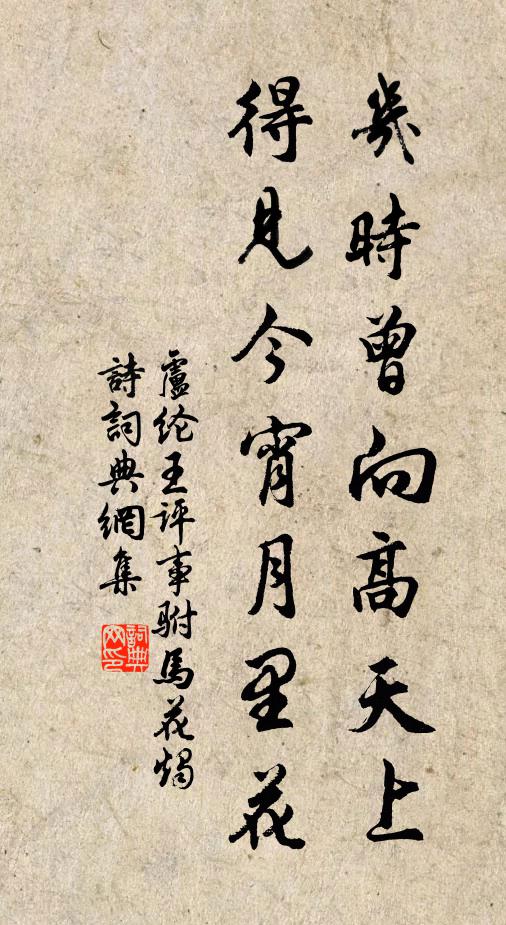 幾時曾向高天上
得見今宵月里花
盧纶王评事駙馬花燭
詩詞典網集
詞典网印